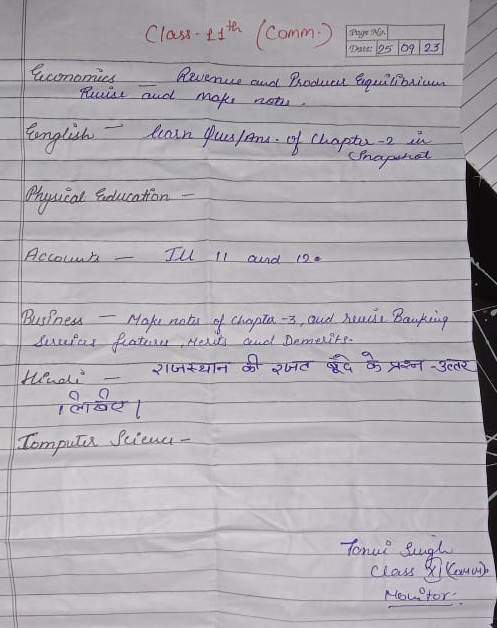 Class-11th (Comm.)
Page No.
Date: 25 09 23
Economics - Revenue and Producer Equilibrium
Revise and make notes.
English - learn Ques/Ans. of Chapter-2 in
Snapshot
Physical Education -
Accounts - Ill 11 and 12.
Business - Make notes of Chapter-3, and revise Banking
Services features, Merits and Demerits.
Hindi - राजस्थान की रजत बूँदे के प्रश्न-उत्तर
लिखिए।
Computer Science -
Tanvi Singh
Class XI (comm).
Monitor.